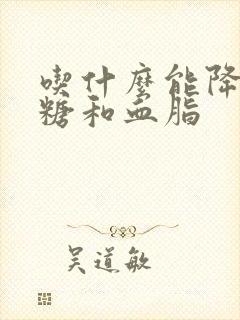 喫什麼能降
糖和血脂
吴道敏